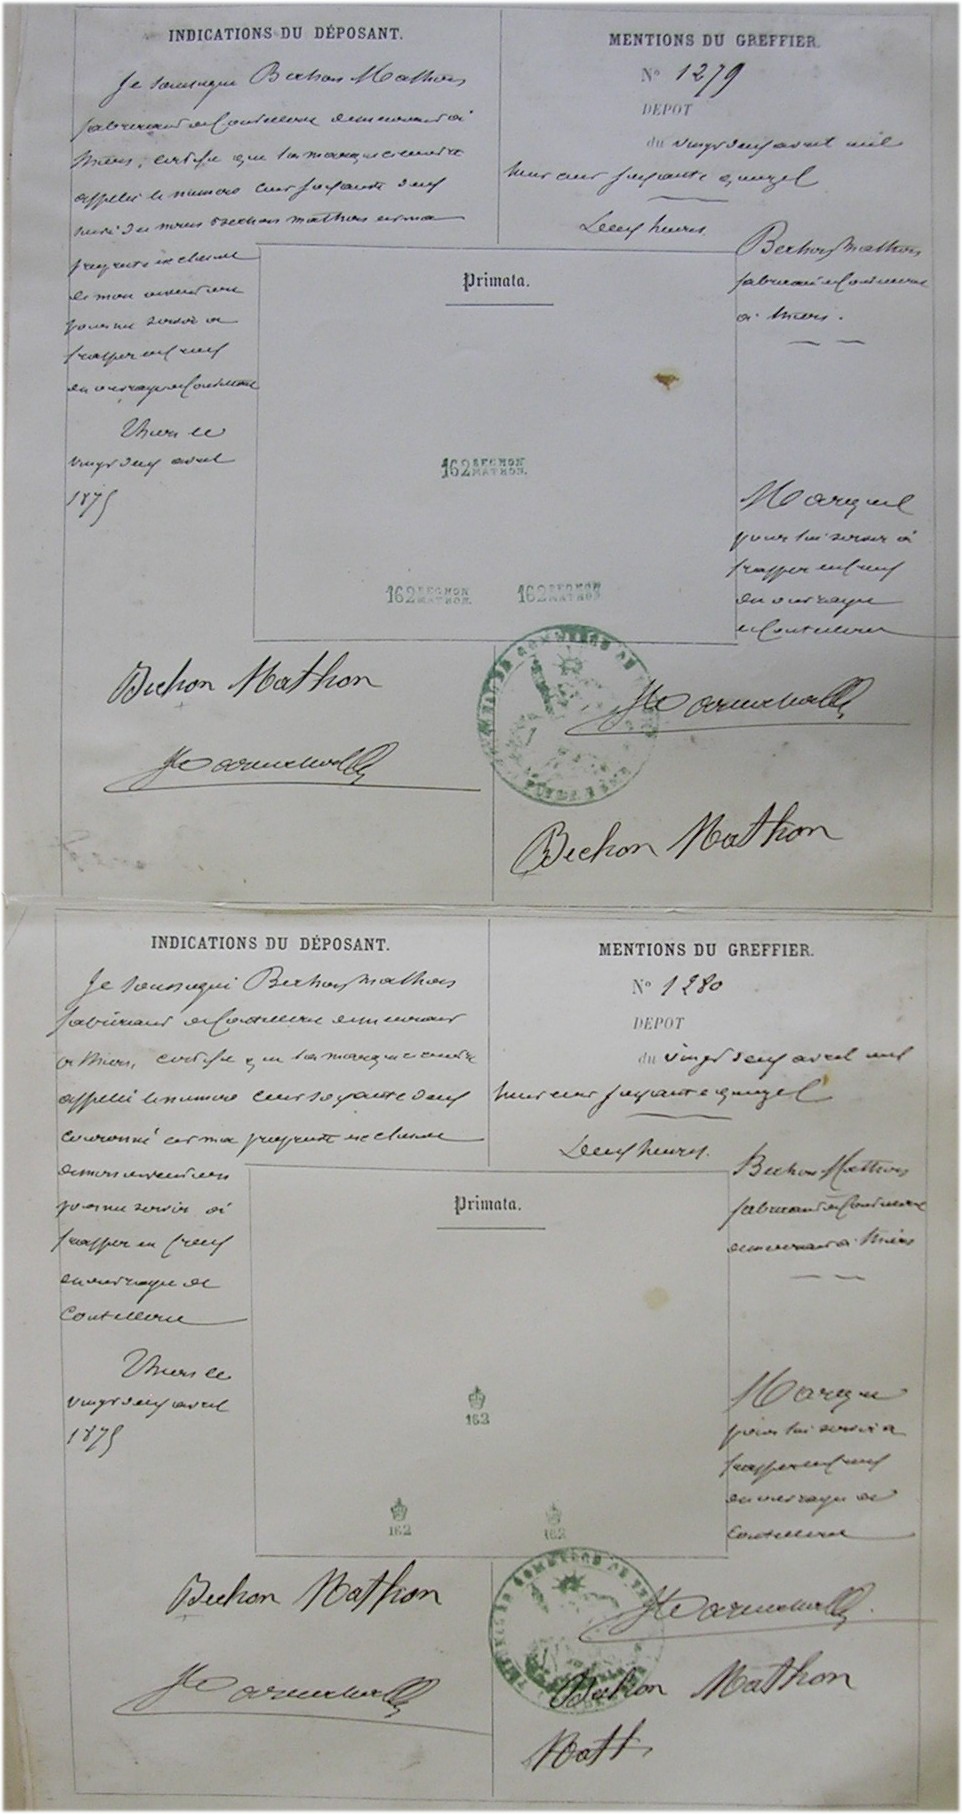 INDICATIONS DU DÉPOSANT.
Je soussigné Bechon Mathon
fabricant de Coutellerie demeurant à
Thiers, certifie que la marque ci contre
appellée le numéro cent soixante deux
suivi du nom Bechon Mathon est ma
propriété exclusive
de mon invention
pour me servir à
frapper en creux
en ouvrages de Coutellerie
Thiers le
vingt deux avril
1875
MENTIONS DU GREFFIER.
N° 1279
DEPOT
du vingt deux avril mil
huit cent soixante quinze
Deux heures.
Bechon Mathon
fabricant de Coutellerie
à Thiers.
Marque
pour lui servir à
frapper en creux
en ouvrages
de Coutellerie
Primata.
162 BECHON
MATHON.
162 BECHON
MATHON.
162 BECHON
MATHON.
Bechon Mathon
Bechon Mathon
INDICATIONS DU DÉPOSANT.
Je soussigné Bechon Mathon
fabricant de Coutellerie demeurant
à Thiers, certifie que la marque ci contre
appellée le numéro cent soixante deux
couronné est ma propriété exclusive
de mon invention
pour me servir à
frapper en creux
en ouvrages de
Coutellerie
Thiers le
vingt deux avril
1875
MENTIONS DU GREFFIER.
N° 1280
DEPOT
du vingt deux avril mil
huit cent soixante quinze
Deux heures.
Bechon Mathon
fabricant de Coutellerie
demeurant à Thiers
Marque
pour lui servir à
frapper en creux
en ouvrages de
Coutellerie
Primata.
162
162
162
Bechon Mathon
Bechon Mathon
Math